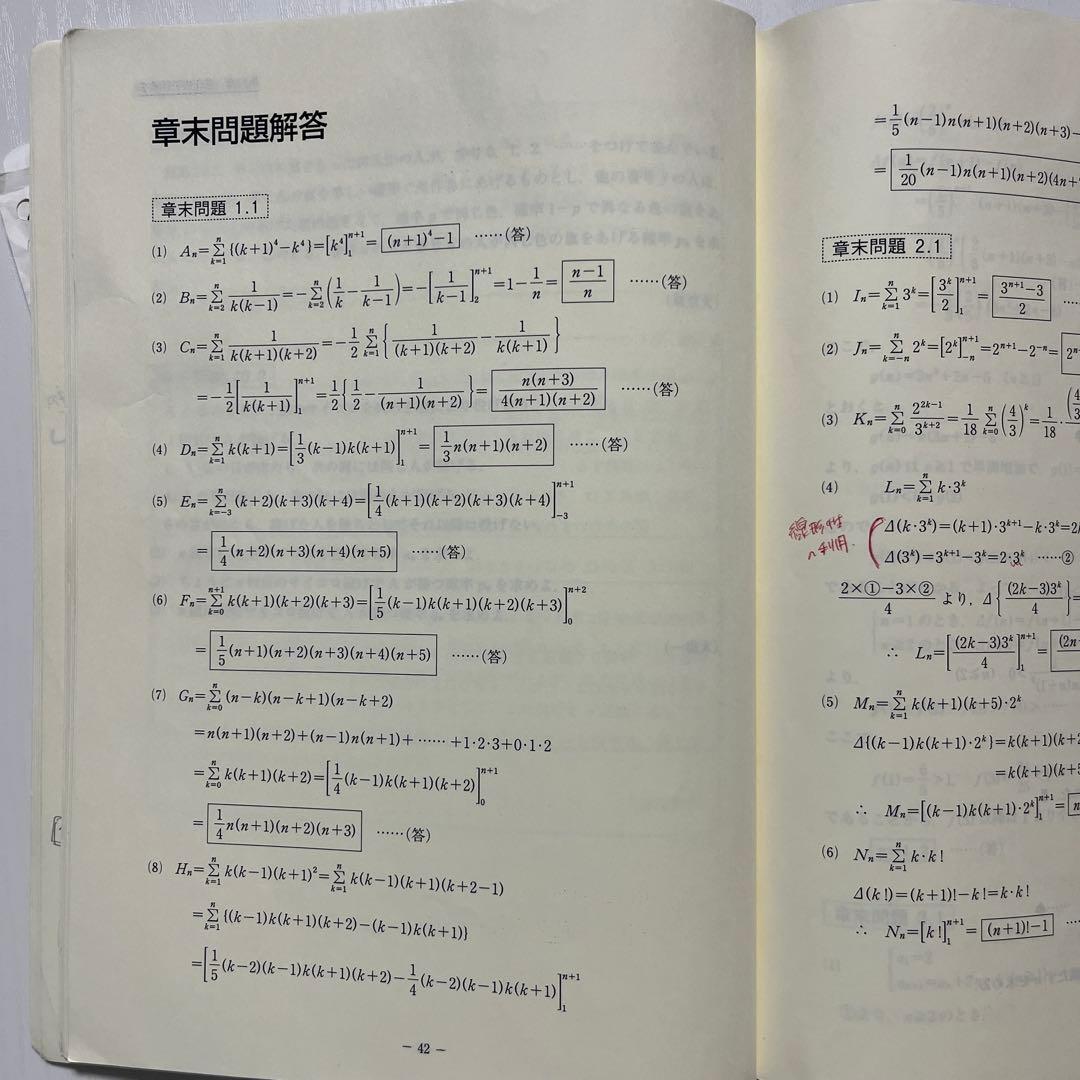 章末問題解答
章末問題 1.1
(1) Aₙ=∑_{k=1}^{n}{(k+1)⁴−k⁴}=[k⁴]_{1}^{n+1}=(n+1)⁴−1 ……(答)
(2) Bₙ=∑_{k=2}^{n} 1/(k(k−1))=−∑_{k=2}^{n}(1/k−1/(k−1))=−[1/(k−1)]_{2}^{n+1}=1−1/n=(n−1)/n ……(答)
(3) Cₙ=∑_{k=1}^{n} 1/(k(k+1)(k+2))=−1/2 ∑_{k=1}^{n}{1/((k+1)(k+2))−1/(k(k+1))}
=−1/2[1/(k(k+1))]_{1}^{n+1}=1/2{1/2−1/((n+1)(n+2))}=n(n+3)/(4(n+1)(n+2)) ……(答)
(4) Dₙ=∑_{k=1}^{n} k(k+1)=[1/3(k−1)k(k+1)]_{1}^{n+1}=1/3 n(n+1)(n+2) ……(答)
(5) Eₙ=∑_{k=−3}^{n}(k+2)(k+3)(k+4)=[1/4(k+1)(k+2)(k+3)(k+4)]_{−3}^{n+1}
=1/4(n+2)(n+3)(n+4)(n+5) ……(答)
(6) Fₙ=∑_{k=0}^{n+1} k(k+1)(k+2)(k+3)=[1/5(k−1)k(k+1)(k+2)(k+3)]_{0}^{n+2}
=1/5(n+1)(n+2)(n+3)(n+4)(n+5) ……(答)
(7) Gₙ=∑_{k=0}^{n}(n−k)(n−k+1)(n−k+2)
=n(n+1)(n+2)+(n−1)n(n+1)+……+1·2·3+0·1·2
=∑_{k=0}^{n} k(k+1)(k+2)=[1/4(k−1)k(k+1)(k+2)]_{0}^{n+1}
=1/4 n(n+1)(n+2)(n+3) ……(答)
(8) Hₙ=∑_{k=1}^{n} k(k−1)(k+1)²=∑_{k=1}^{n} k(k−1)(k+1)(k+2−1)
=∑_{k=1}^{n}{(k−1)k(k+1)(k+2)−(k−1)k(k+1)}
=[1/5(k−2)(k−1)k(k+1)(k+2)−1/4(k−2)(k−1)k(k+1)]_{1}^{n+1}
− 42 −
=1/5(n−1)n(n+1)(n+2)(n+3)−
=1/20(n−1)n(n+1)(n+2)(4n+
章末問題 2.1
(1) Iₙ=∑_{k=1}^{n} 3ᵏ=[3ᵏ/2]_{1}^{n+1}=(3ⁿ⁺¹−3)/2 …
(2) Jₙ=∑_{k=−n}^{n} 2ᵏ=[2ᵏ]_{−n}^{n+1}=2ⁿ⁺¹−2⁻ⁿ=
(3) Kₙ=∑_{k=0}^{n} 2²ᵏ⁻¹/3ᵏ⁺²=1/18 ∑_{k=0}^{n}(4/3)ᵏ=1/18·
(4) Lₙ=∑_{k=1}^{n} k·3ᵏ
線形性
へ利用
Δ(k·3ᵏ)=(k+1)·3ᵏ⁺¹−k·3ᵏ=
Δ(3ᵏ)=3ᵏ⁺¹−3ᵏ=2·3ᵏ ……②
(2×①−3×②)/4 より, Δ{(2k−3)3ᵏ/4}=
∴ Lₙ=[(2k−3)3ᵏ/4]_{1}^{n+1}=
(5) Mₙ=∑_{k=1}^{n} k(k+1)(k+5)·2ᵏ
Δ{(k−1)k(k+1)·2ᵏ}=k(k+1)(k+
=k(k+1)(k+5
∴ Mₙ=[(k−1)k(k+1)·2ᵏ]_{1}^{n+1}=
(6) Nₙ=∑_{k=1}^{n} k·k!
Δ(k!)=(k+1)!−k!=k·k!
∴ Nₙ=[k!]_{1}^{n+1}=(n+1)!−1 …